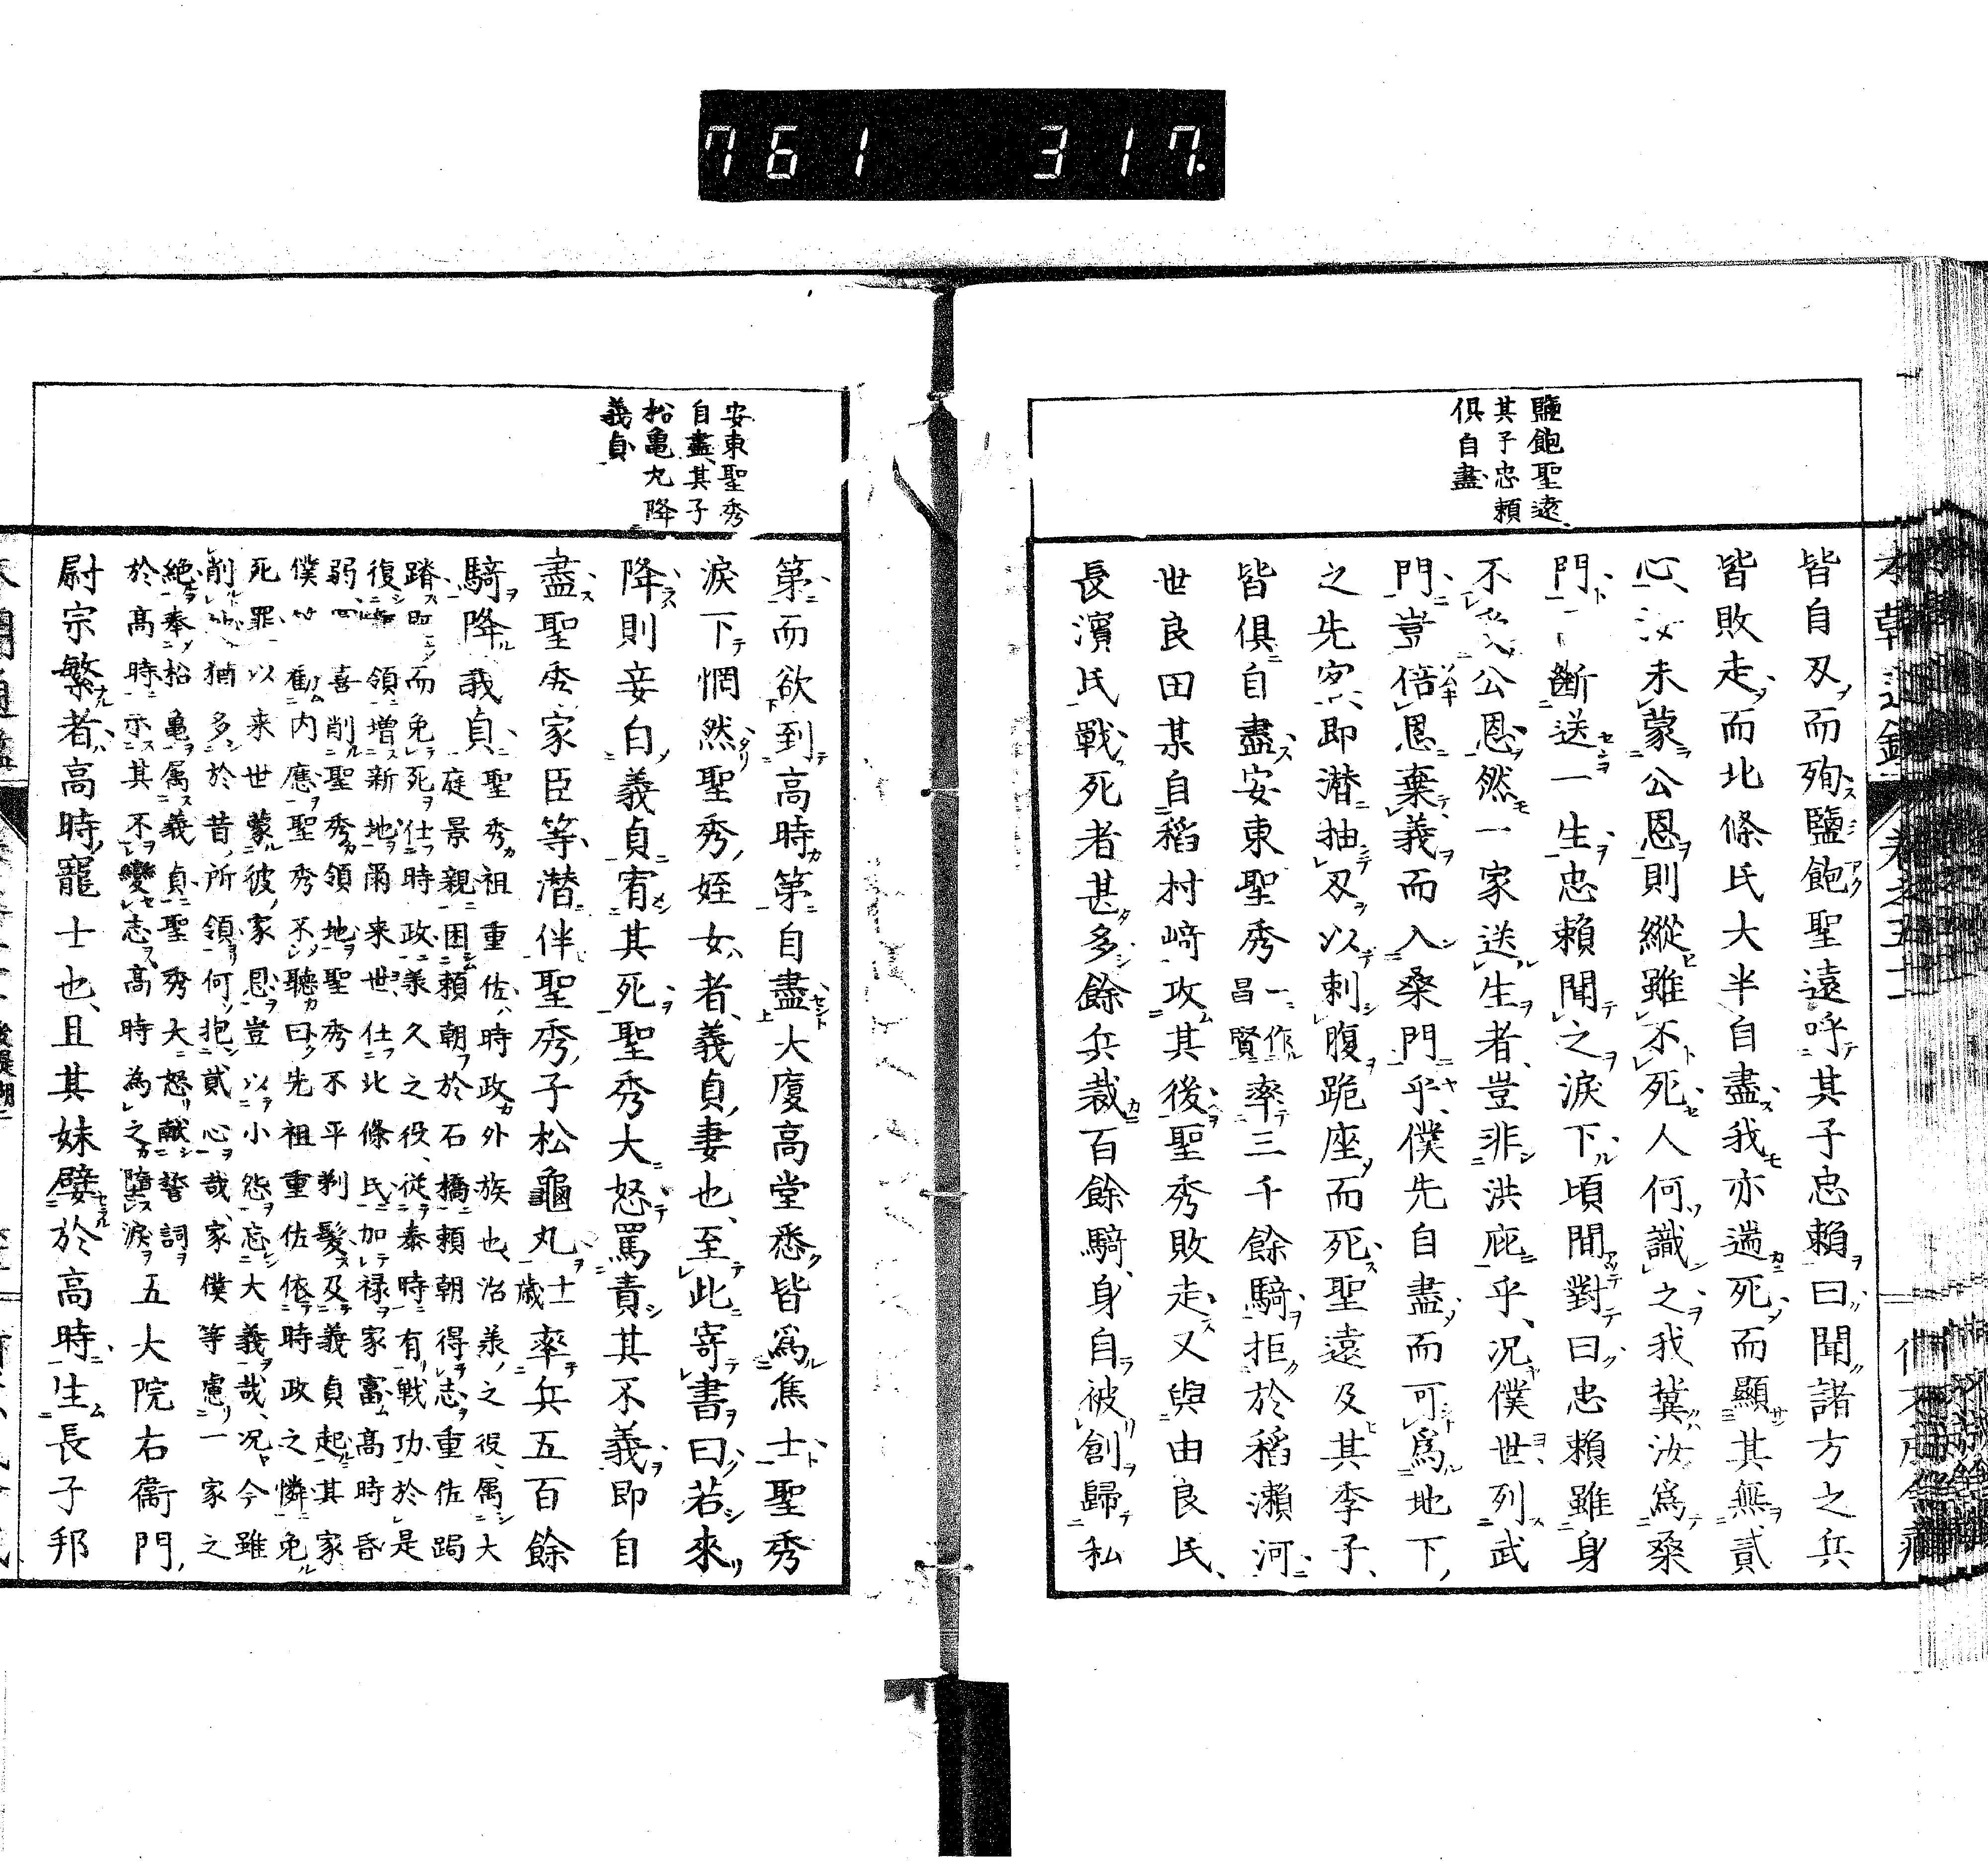 761 317
鹽飽聖遠
其子忠賴
俱自盡
皆自刄而殉鹽飽聖遠呼其子忠賴曰聞諸方之兵
皆敗走而北條氏大半自盡我亦遄死而顯其無貳
心汝未蒙公恩則縱雖不死人何識之我冀汝爲桑
門断送一生忠賴聞之淚下頃聞對曰忠賴雖身
不公恩然一家送生者豈非洪庇乎況僕世列武
門豈倍恩棄義而入桑門乎僕先自盡而可爲地下
之先容即潛抽刄以刺腹跪座而死聖遠及其季子
皆俱自盡安東聖秀一作昌賢率三千餘騎拒於稻瀨河
世良田某自稻村﨑攻其後聖秀敗走又與由良氏
長濱氏戰死者甚多餘兵裁百餘騎身自被創歸私
安東聖秀
自盡其子
松亀丸降
義貞
第而欲到高時第自盡大廈高堂悉皆爲焦土聖秀
淚下惘然聖秀姪女者義貞妻也至此寄書曰若來
降則妾白義貞宥其死聖秀大怒罵責其不義即自
盡聖秀家臣等潛伴聖秀子松龜丸十一歳率兵五百餘
騎降義貞
聖秀祖重佐時政外族也治羕之役属大
庭景親困賴朝於石橋賴朝得志重佐跼
蹐而免死仕時政羕久之役従泰時有戦功於是
復領増新地爾来世仕北條氏加禄家富高時昏
弱喜削聖秀領地聖秀不平剃髮及義貞起其家
僕勸内應聖秀不聴曰先祖重佐依時政之憐免
死罪以来世蒙彼家恩豈以小怨忘大義哉况今雖
削猶多於昔所領何抱貳心哉家僕等慮一家之
絶奉松亀属義貞聖秀大怒献誓詞
於高時示其不變志高時為之墮淚
五大院右衞門
尉宗繁者高時寵士也且其妹嬖於高時生長子邦